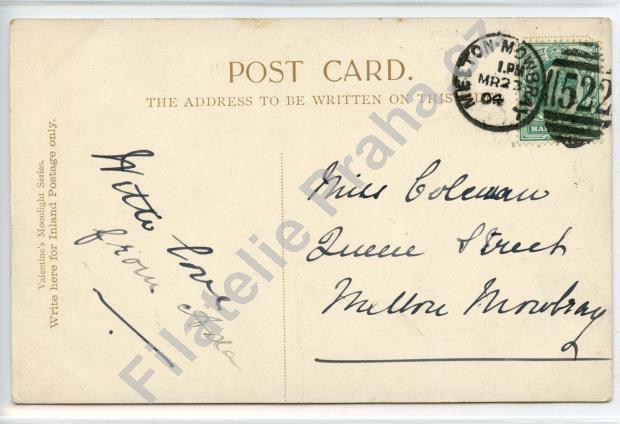 POST CARD.
THE ADDRESS TO BE WRITTEN ON THIS SIDE
MELTON-MOWBRAY
1.PM
MR 22
04
522
HALF
Valentine's Moonlight Series.
Write here for Inland Postage only.
With love
from Ada
Miss Coleman
Queen Street
Melton Mowbray
Filatelie Praha.cz